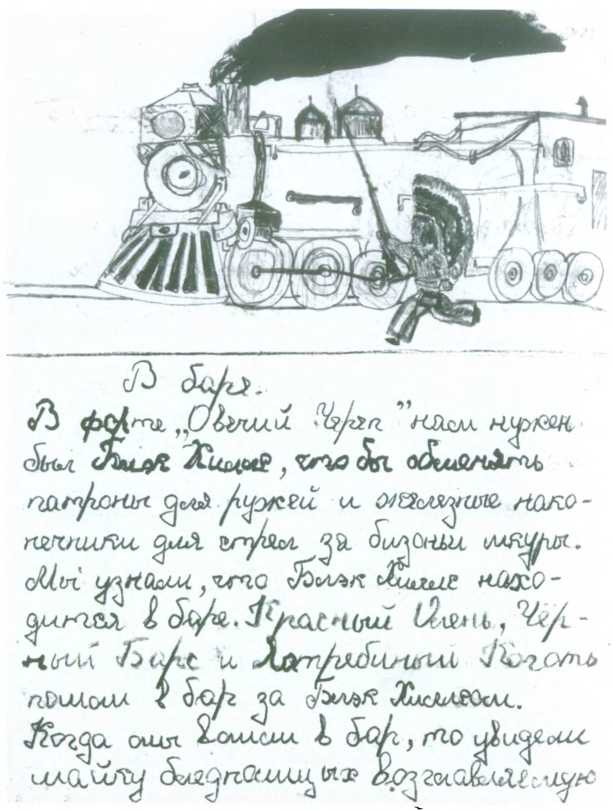 В баре.
В форте „Овечий Череп” нам нужен
был Блэк Хиллс, что бы обменять
патроны для ружей и железные нако-
нечники для стрел за бизоньи шкуры.
Мы узнали, что Блэк Хиллс нахо-
дится в баре. Красный Олень, Чёр-
ный Барс и Ястребиный Коготь
пошли в бар за Блэк Хиллсом.
Когда они вошли в бар, то увидели
шайку бледнолицых возглавляемую